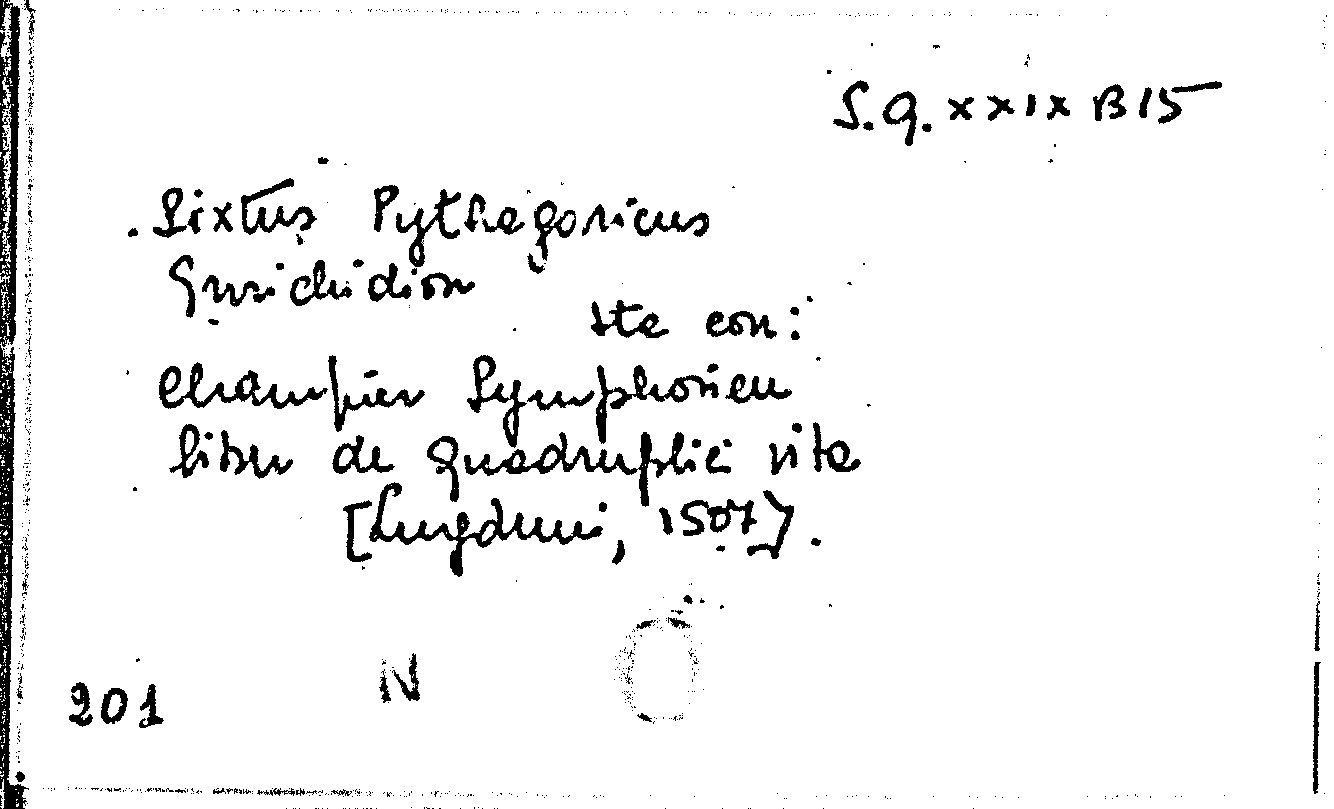 S.Q. XXIX B 15
Sixtus Pythagoricus
Enrichidion
sta con:
Champier Symphorien
liber de quadruplici vita
[Lugduni, 1507].
201
N